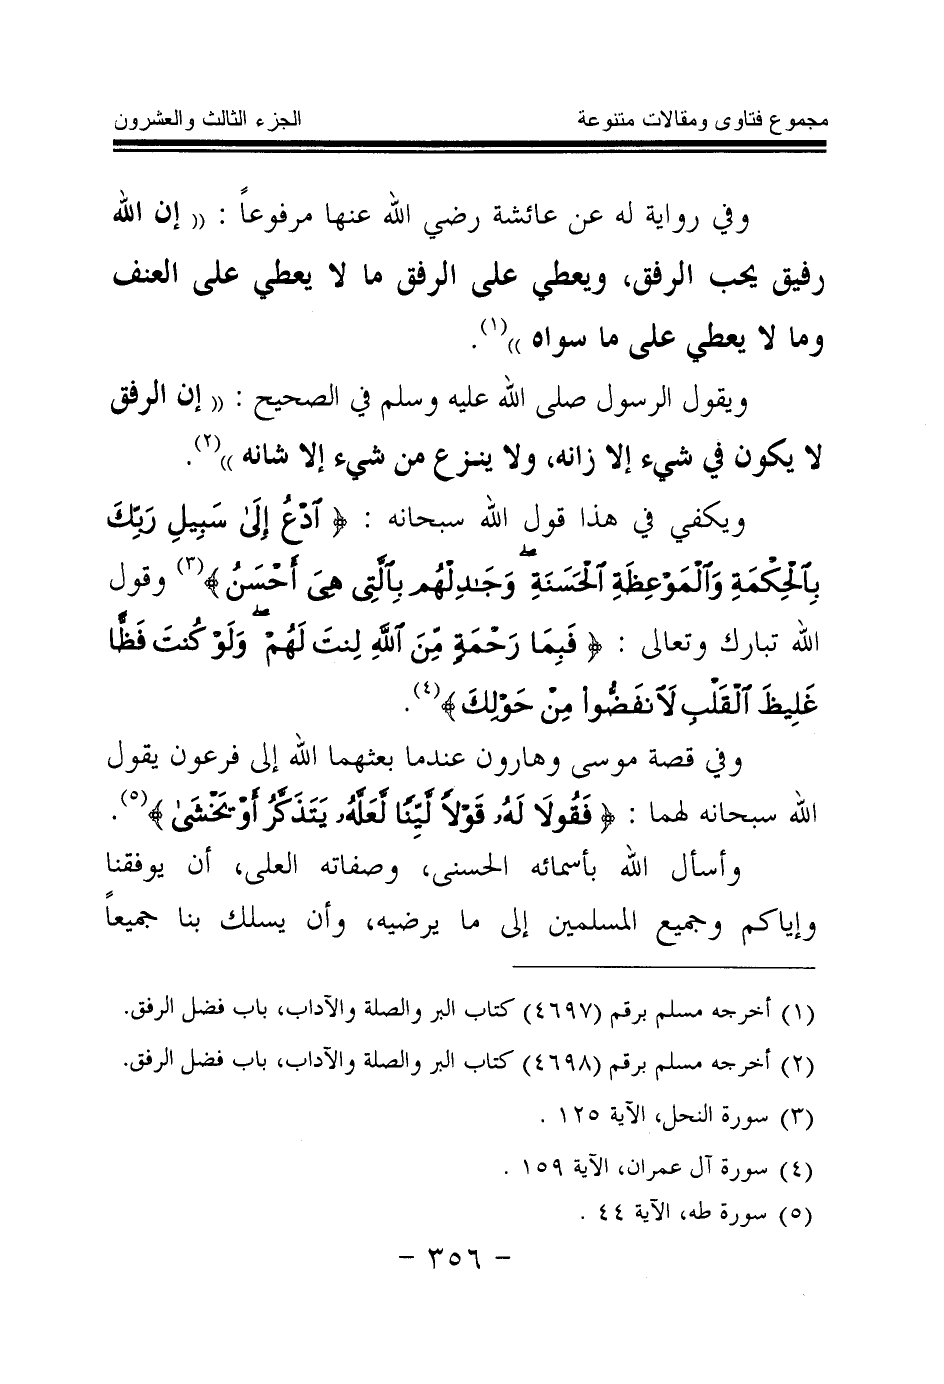 مجموع فتاوى ومقالات متنوعة الجزء الثالث والعشرون
وفي رواية له عن عائشة رضي الله عنها مرفوعاً : (( إن الله
رفيق يحب الرفق، ويعطي على الرفق ما لا يعطي على العنف
وما لا يعطي على ما سواه ))(١).
ويقول الرسول صلى الله عليه وسلم في الصحيح : (( إن الرفق
لا يكون في شيء إلا زانه، ولا ينزع من شيء إلا شانه ))(٢).
ويكفي في هذا قول الله سبحانه : ﴿ ٱدْعُ إِلَىٰ سَبِيلِ رَبِّكَ
بِٱلْحِكْمَةِ وَٱلْمَوْعِظَةِ ٱلْحَسَنَةِ ۖ وَجَـٰدِلْهُم بِٱلَّتِى هِىَ أَحْسَنُ ﴾(٣) وقول
الله تبارك وتعالى : ﴿ فَبِمَا رَحْمَةٍ مِّنَ ٱللَّهِ لِنتَ لَهُمْ ۖ وَلَوْ كُنتَ فَظًّا
غَلِيظَ ٱلْقَلْبِ لَٱنفَضُّوا۟ مِنْ حَوْلِكَ ﴾(٤).
وفي قصة موسى وهارون عندما بعثهما الله إلى فرعون يقول
الله سبحانه لهما : ﴿ فَقُولَا لَهُۥ قَوْلًا لَّيِّنًا لَّعَلَّهُۥ يَتَذَكَّرُ أَوْ يَخْشَىٰ ﴾(٥).
وأسأل الله بأسمائه الحسنى، وصفاته العلى، أن يوفقنا
وإياكم وجميع المسلمين إلى ما يرضيه، وأن يسلك بنا جميعاً
(١) أخرجه مسلم برقم (٤٦٩٧) كتاب البر والصلة والآداب، باب فضل الرفق.
(٢) أخرجه مسلم برقم (٤٦٩٨) كتاب البر والصلة والآداب، باب فضل الرفق.
(٣) سورة النحل، الآية ١٢٥ .
(٤) سورة آل عمران، الآية ١٥٩ .
(٥) سورة طه، الآية ٤٤ .
- ٣٥٦ -